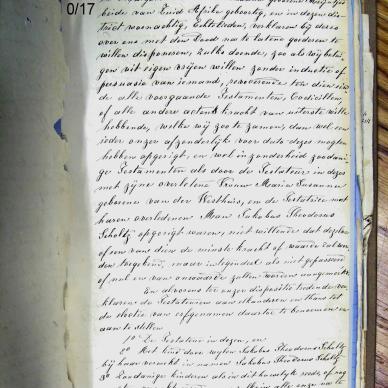 0/17
beide van Zuid Afrika geboortig, en in dezen dis-
trict woonachtig, Echtelieden, verklaren bij dezen
over ons met den Dood na te laten goederen te
willen disponeren, zulks doende, zoo als wij betui-
gen uit eigen vrijen willen zonder inductie of
persuasie van iemand, revocerende ten dien eind
de alle voorgaande Testamenten, Codicillen,
of alle andere acten kracht van uiterste wille
hebbende, welke wij zoo te zamen, dan wel een
ieder onzer afzonderlijk voor dato dezes mogten
hebben opgerigt, en wel in zonderheid zoodani-
ge Testamenten als door de Testateur in dezes
met zijne overledene Vrouw Maria Susanna
geboren van der Westhuis, en de Testatrice met
haren overledenen Man Jakobus Theodorus
Scholtz opgerigt waren, niet willende dat dezelve
of een van dien de minste kracht of waarde zal wor
den toegekend, maar integendeel als niet gepasseerd
of nul en van onwaarde zullen worden aangemerkt
En alvorens ter onzer dispositie tredende ver-
klaren de Testateuren aan elkanderen en thans tot
de stootie van erfgenamen daartoe te benoemen en
aan te stellen
1º De Testatrice in dezen, en
2º Het kind door wijlen Jakobus Theodorus Scholtz
bij haar verwekt in namen Jakobus Theodorus Scholtz
3º Zoodanige kinderen als in dit huwelijk reeds of nog